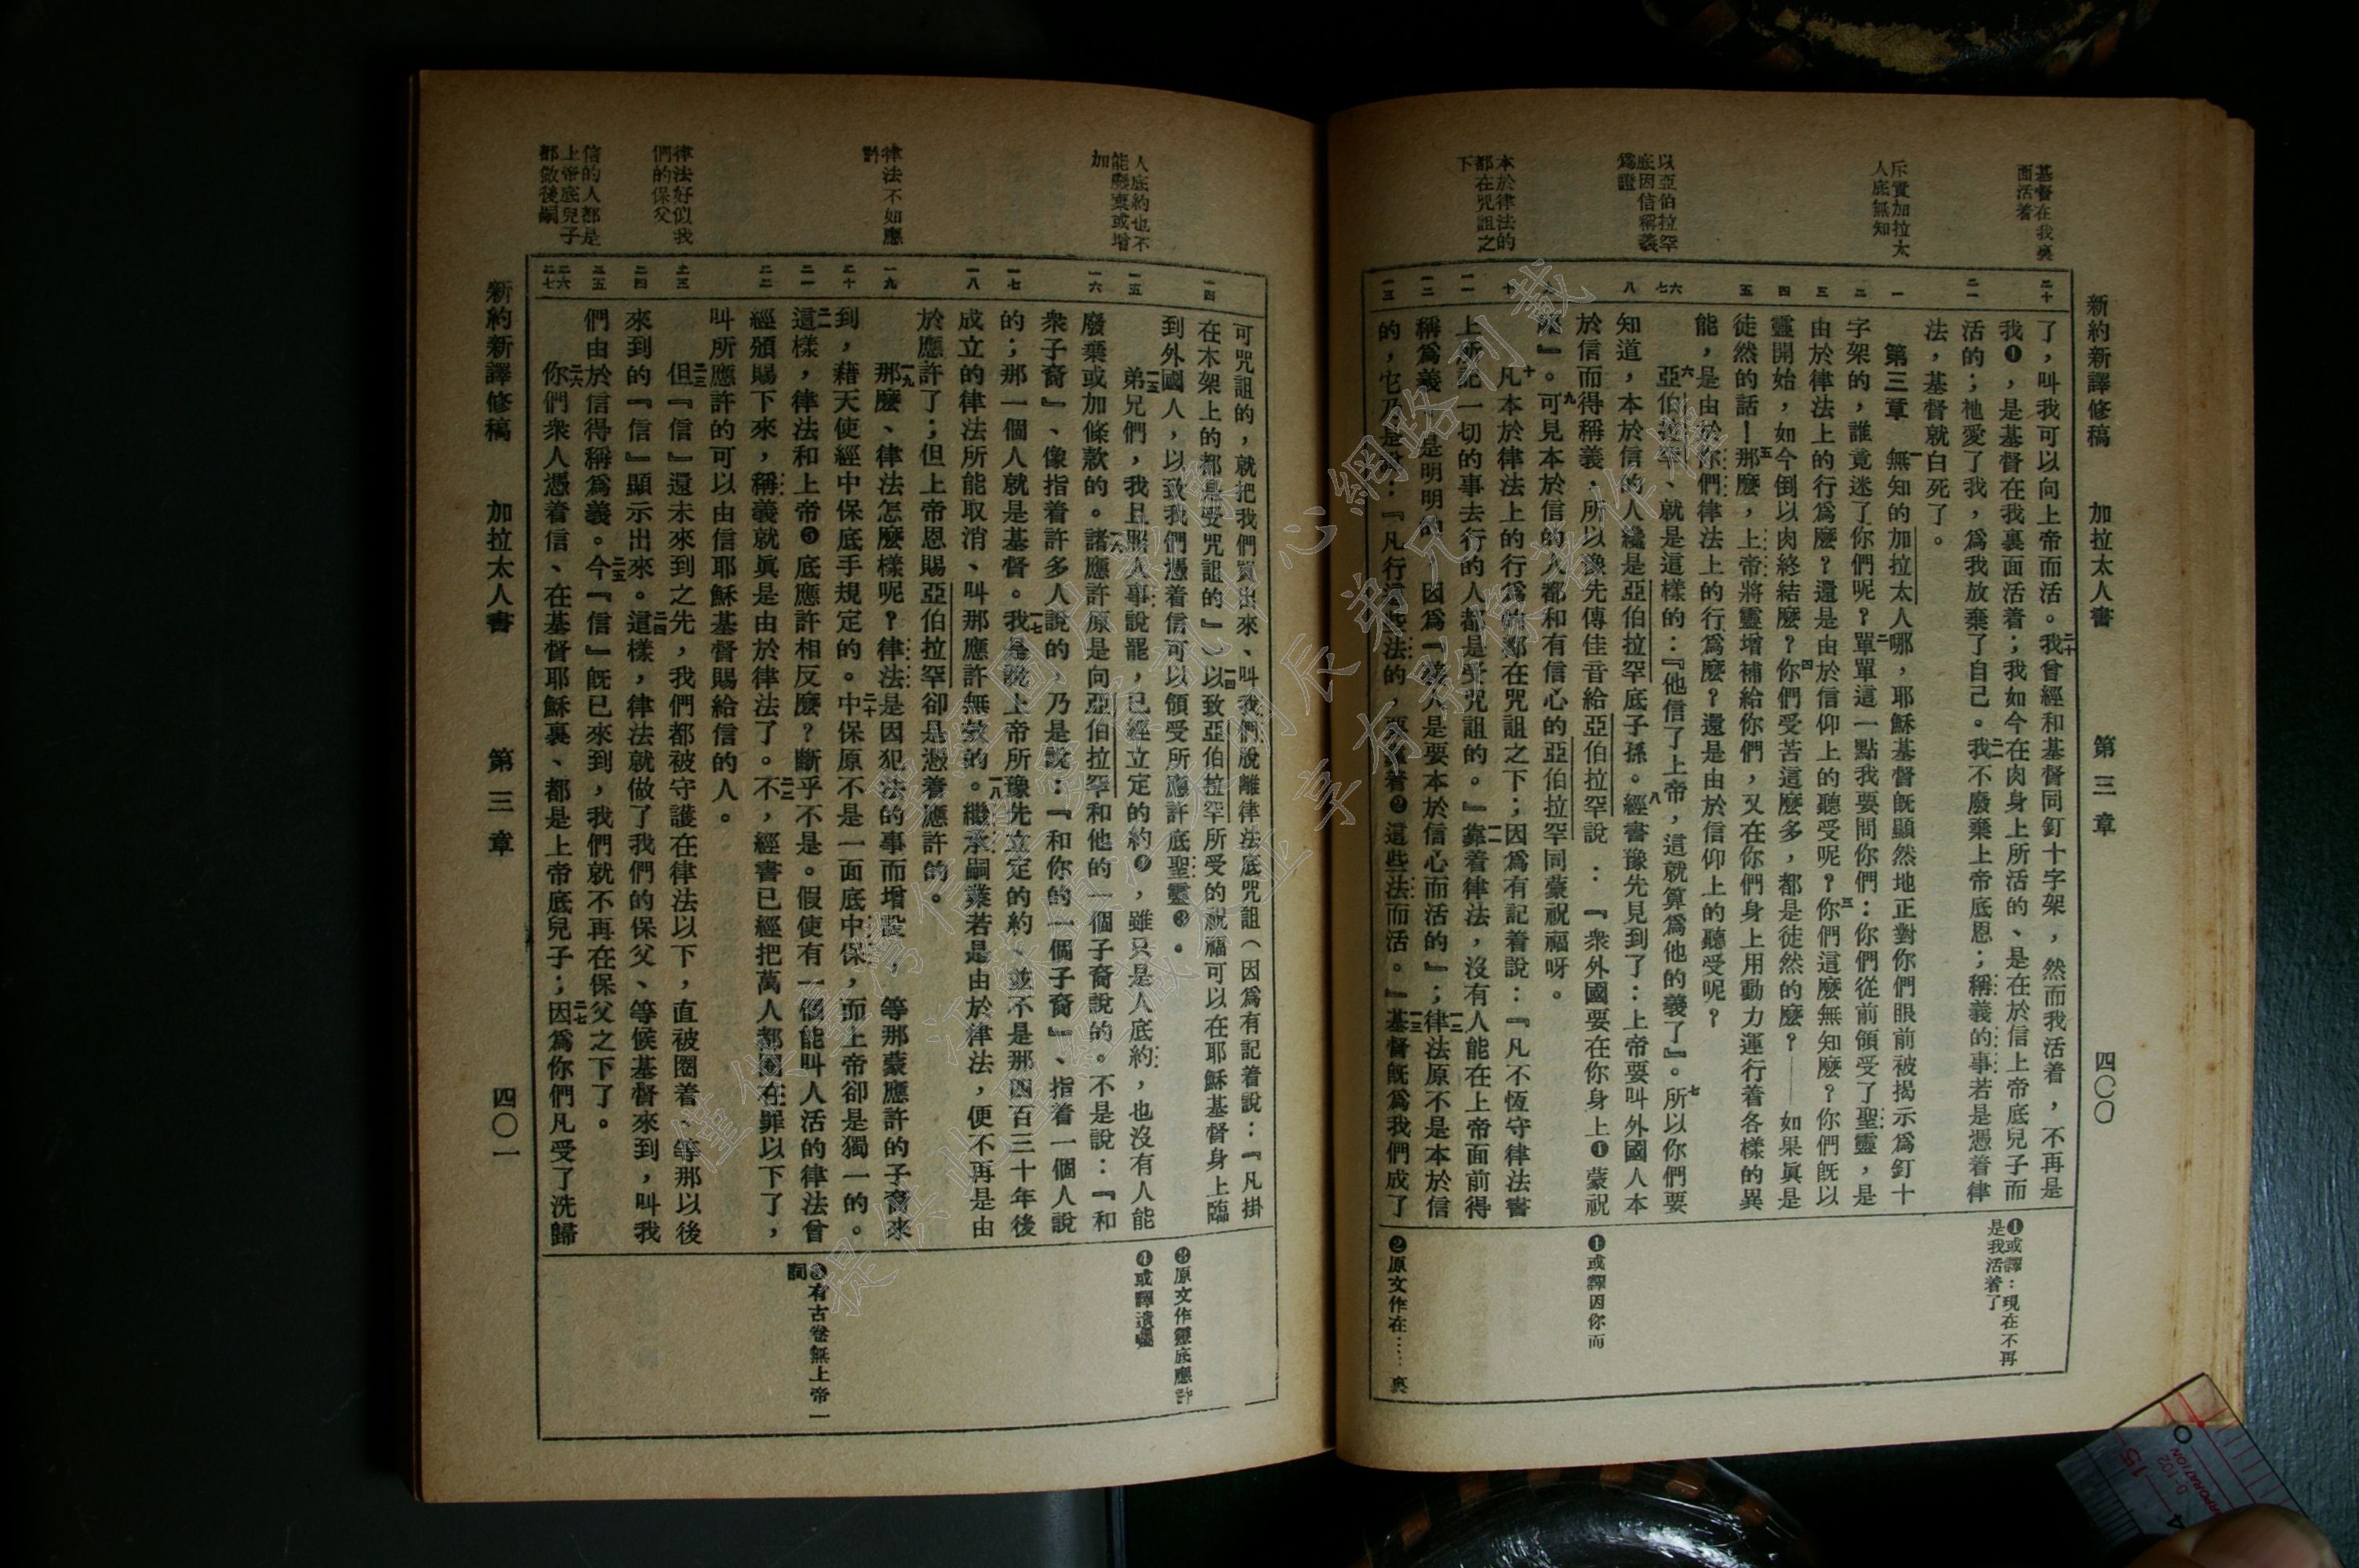 新約新譯修稿　加拉太人書　第三章　四〇〇
基督在我裏
面活着
斥責加拉太
人底無知
以亞伯拉罕
底因信稱義
爲證
本於律法的
都在咒詛之
下
二十
二一
一
二
三
四
五
六
七
八
九
十
一一
一二
一三
了，叫我可以向上帝而活。二十我曾經和基督同釘十字架，然而我活着，不再是
我❶，是基督在我裏面活着；我如今在肉身上所活的、是在於信上帝底兒子而
活的；祂愛了我，爲我放棄了自己。二一我不廢棄上帝底恩；稱義的事若是憑着律
法，基督就白死了。
第三章　一無知的加拉太人哪，耶穌基督旣顯然地正對你們眼前被揭示爲釘十
字架的，誰竟迷了你們呢？二單單這一點我要問你們：你們從前領受了聖靈，是
由於律法上的行爲麽？還是由於信仰上的聽受呢？三你們這麽無知麽？你們旣以
靈開始，如今倒以肉終結麽？四你們受苦這麽多，都是徒然的麽？——如果眞是
徒然的話！五那麽，上帝將靈增補給你們，又在你們身上用動力運行着各樣的異
能，是由於你們律法上的行爲麽？還是由於信仰上的聽受呢？
六亞伯拉罕、就是這樣的：『他信了上帝，這就算爲他的義了』。七所以你們要
知道，本於信的人纔是亞伯拉罕底子孫。八經書豫先見到了：上帝要叫外國人本
於信而得稱義，所以豫先傳佳音給亞伯拉罕說：『衆外國要在你身上❶蒙祝
福』。九可見本於信的人都和有信心的亞伯拉罕同蒙祝福呀。
十凡本於律法上的行爲的都在咒詛之下；因爲有記着說：『凡不恆守律法書
上所記一切的事去行的人都是受咒詛的。』一一靠着律法，沒有人能在上帝面前得
稱爲義、是明明的，因爲『義人是要本於信心而活的』；一二律法原不是本於信
的，它乃是說：『凡行這些法的，要靠着❷這些法而活。』一三基督旣爲我們成了
❶或譯：現在不再
是我活着了
❶或譯因你而
❷原文作在……裏
人底約也不
能廢棄或增
加
律法不如應
許
律法好似我
們的保父
信的人都是
上帝底兒子
都做後嗣
一四
一五
一六
一七
一八
一九
二十
二一
二二
二三
二四
二五
二六
二七
可咒詛的，就把我們買出來、叫我們脫離律法底咒詛（因爲有記着說：『凡掛
在木架上的都是受咒詛的』）一四以致亞伯拉罕所受的祝福可以在耶穌基督身上臨
到外國人，以致我們憑着信可以領受所應許底聖靈❸。
一五弟兄們，我且照人事說罷，已經立定的約❹，雖只是人底約，也沒有人能
廢棄或加條款的。一六諸應許原是向亞伯拉罕和他的一個子裔說的。不是說：『和
衆子裔』、像指着許多人說的，乃是說：『和你的一個子裔』、指着一個人說
的；那一個人就是基督。一七我是說上帝所豫先立定的約、並不是那四百三十年後
成立的律法所能取消、叫那應許無效的。一八繼承嗣業若是由於律法，便不再是由
於應許了；但上帝恩賜亞伯拉罕卻是憑着應許的。
一九那麽、律法怎麽樣呢？律法是因犯法的事而增設，等那蒙應許的子裔來
到，藉天使經中保底手規定的。二十中保原不是一面底中保，而上帝卻是獨一的。
二一這樣，律法和上帝❺底應許相反麽？斷乎不是。假使有一個能叫人活的律法曾
經頒賜下來，稱義就眞是由於律法了。二二不，經書已經把萬人都圈在罪以下了，
叫所應許的可以由信耶穌基督賜給信的人。
二三但『信』還未來到之先，我們都被守護在律法以下，直被圈着、等那以後
來到的『信』顯示出來。二四這樣，律法就做了我們的保父、等候基督來到，叫我
們由於信得稱爲義。二五今『信』旣已來到，我們就不再在保父之下了。
二六你們衆人憑着信、在基督耶穌裏、都是上帝底兒子；二七因爲你們凡受了洗歸
❸原文作靈底應許
❹或譯遺囑
❺有古卷無上帝一
詞
新約新譯修稿　加拉太人書　第三章　四〇一